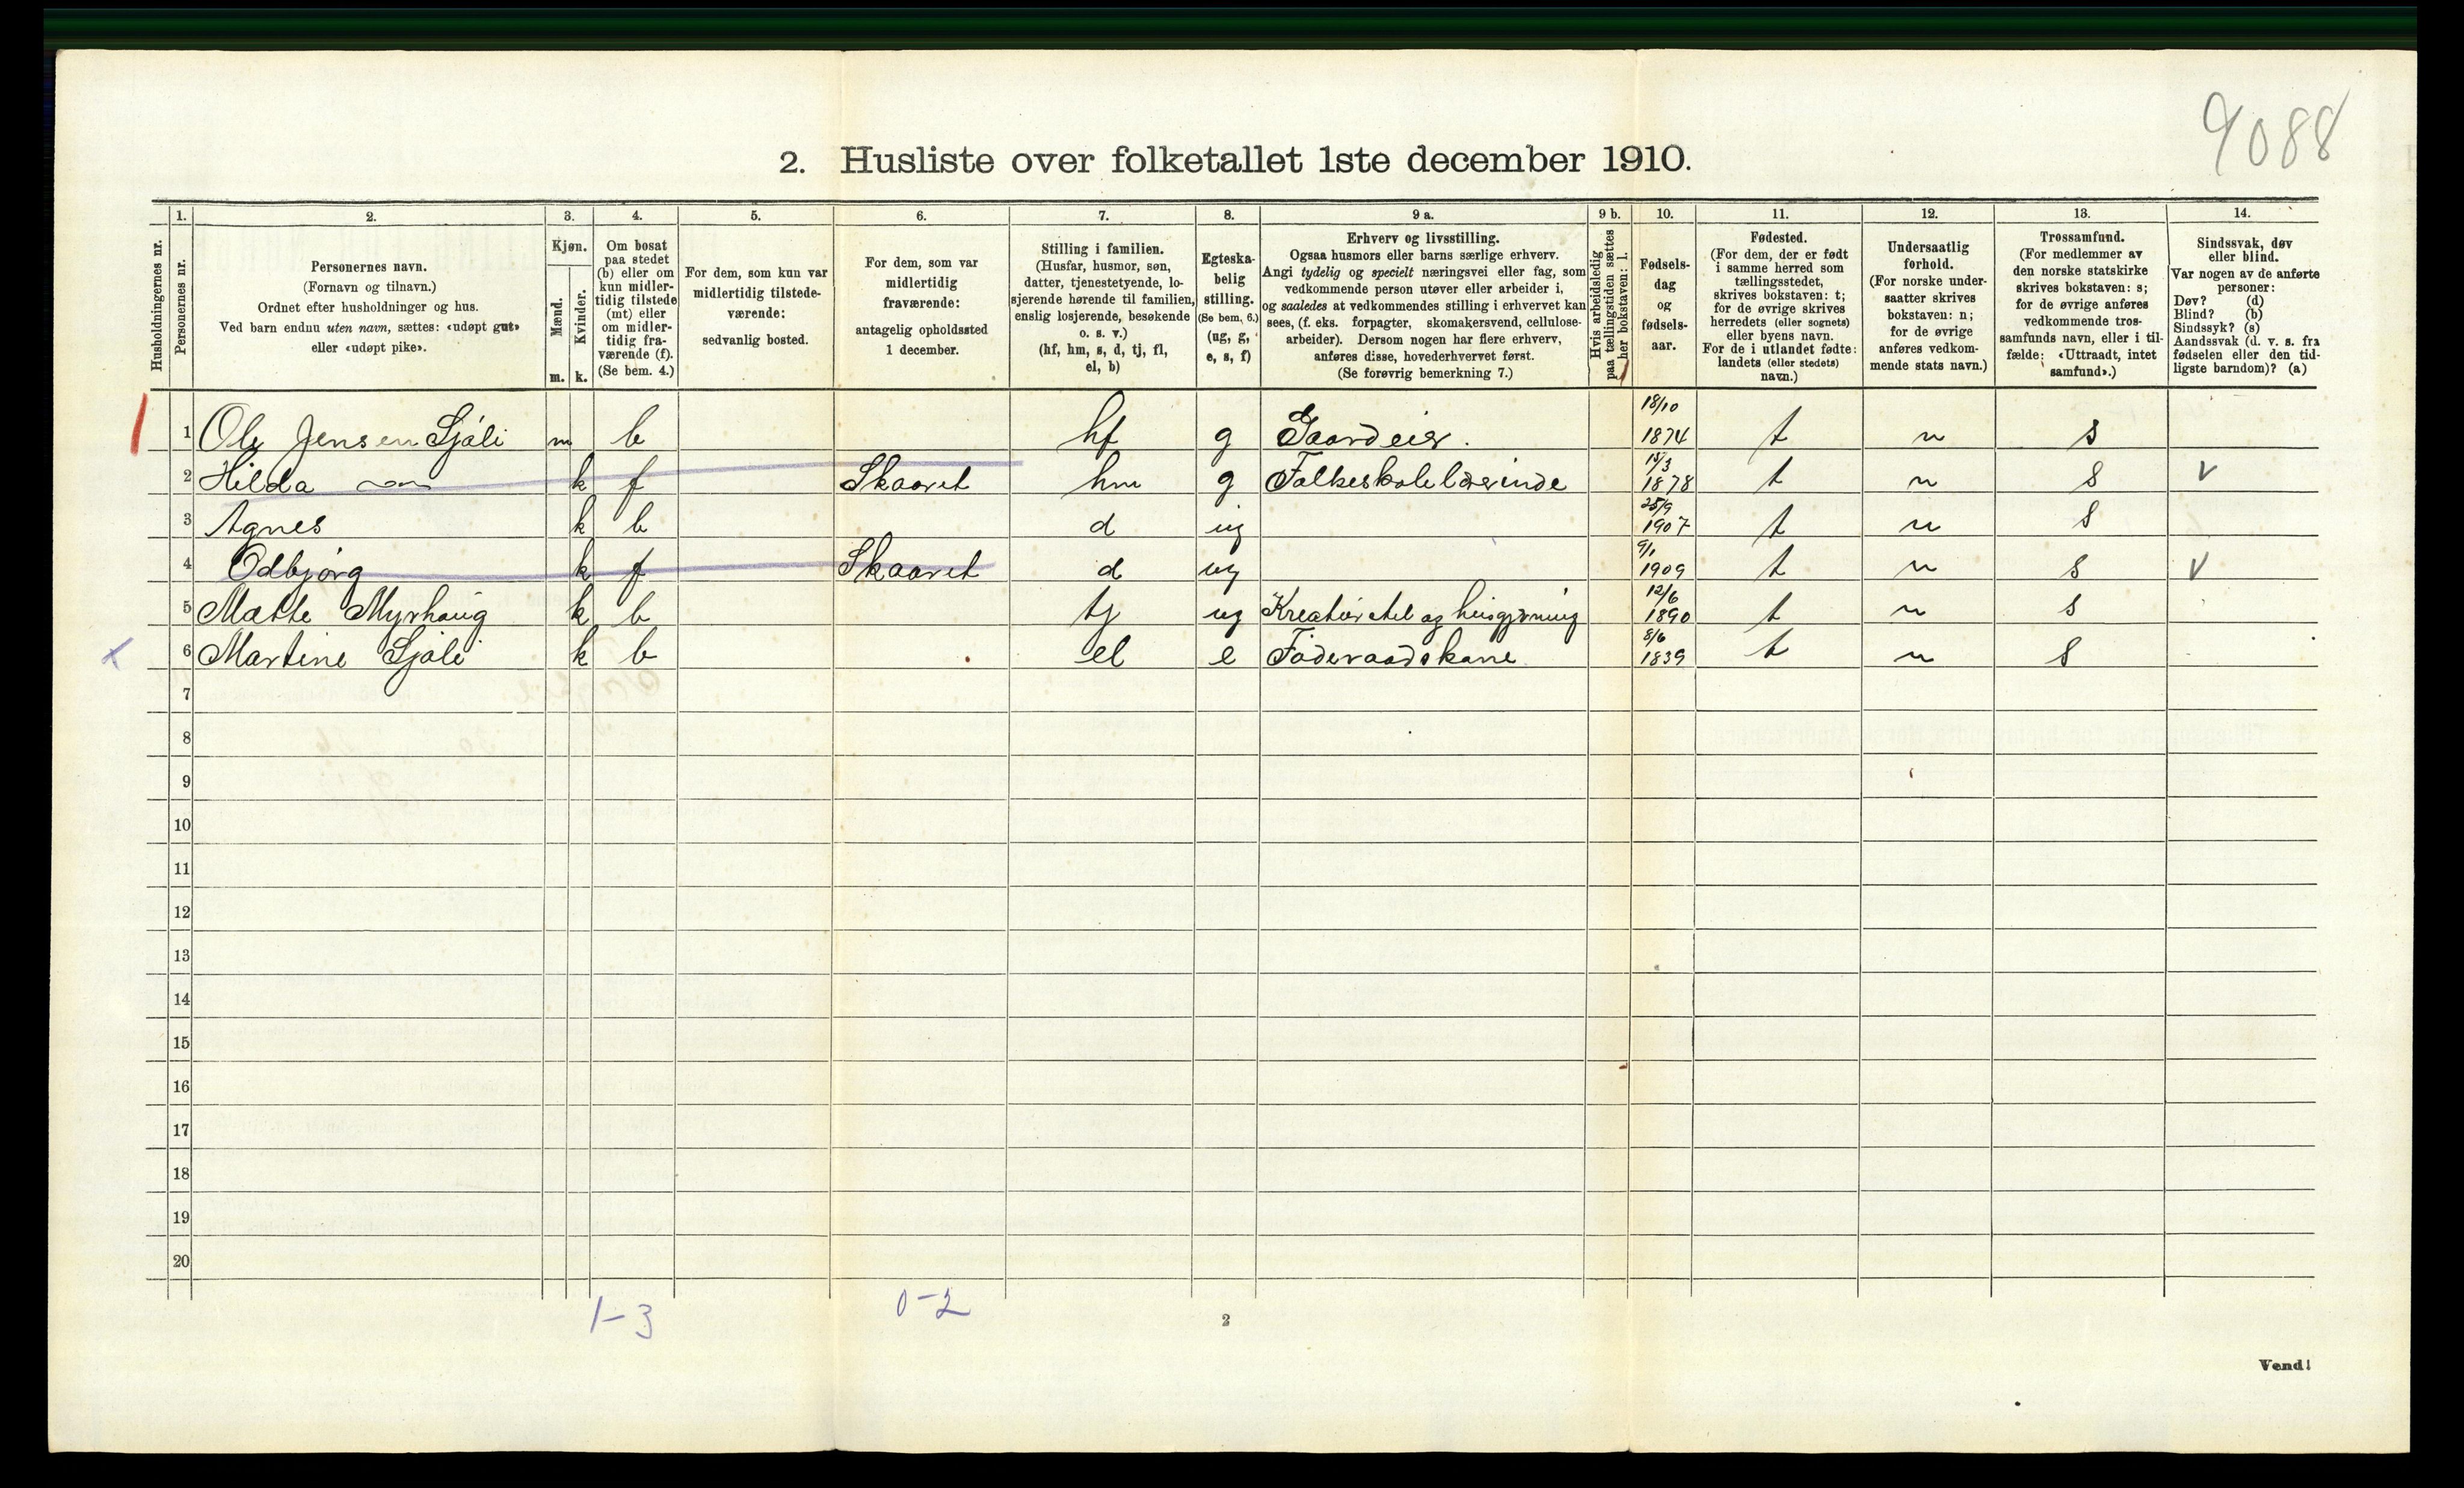 9088
2. Husliste over folketallet 1ste december 1910.
Husholdningernes nr.
1.
Personernes nr.
2.
Personernes navn.
(Fornavn og tilnavn.)
Ordnet efter husholdninger og hus.
Ved barn endnu uten navn, sættes: «udøpt gut»
eller «udøpt pike».
3.
Kjøn.
Mænd.
Kvinder.
m. k.
4.
Om bosat
paa stedet
(b) eller om
kun midler-
tidig tilstede
(mt) eller
om midler-
tidig fra-
værende (f).
(Se bem. 4.)
5.
For dem, som kun var
midlertidig tilstede-
værende:
sedvanlig bosted.
6.
For dem, som var
midlertidig
fraværende:
antagelig opholdssted
1 december.
7.
Stilling i familien.
(Husfar, husmor, søn,
datter, tjenestetyende, lo-
sjerende hørende til familien,
enslig losjerende, besøkende
o. s. v.)
(hf, hm, s, d, tj, fl,
el, b)
8.
Egteska-
belig
stilling.
(Se bem. 6.)
(ug, g,
e, s, f)
9 a.
Erhverv og livsstilling.
Ogsaa husmors eller barns særlige erhverv.
Angi tydelig og specielt næringsvei eller fag, som
vedkommende person utøver eller arbeider i,
og saaledes at vedkommendes stilling i erhvervet kan
sees, (f. eks. forpagter, skomakersvend, cellulose-
arbeider). Dersom nogen har flere erhverv,
anføres disse, hovederhvervet først.
(Se forøvrig bemerkning 7.)
9 b.
Hvis arbeidsledig
paa tællingstiden sættes
her bokstaven: l.
10.
Fødsels-
dag
og
fødsels-
aar.
11.
Fødested.
(For dem, der er født
i samme herred som
tællingsstedet,
skrives bokstaven: t;
for de øvrige skrives
herredets (eller sognets)
eller byens navn.
For de i utlandet fødte:
landets (eller stedets)
navn.)
12.
Undersaatlig
forhold.
(For norske under-
saatter skrives
bokstaven: n;
for de øvrige
anføres vedkom-
mende stats navn.)
13.
Trossamfund.
(For medlemmer av
den norske statskirke
skrives bokstaven: s;
for de øvrige anføres
vedkommende tros-
samfunds navn, eller i til-
fælde: «Uttraadt, intet
samfund».)
14.
Sindssvak, døv
eller blind.
Var nogen av de anførte
personer:
Døv? (d)
Blind? (b)
Sindssyk? (s)
Aandssvak (d. v. s. fra
fødselen eller den tid-
ligste barndom)? (a)
1 Ole Jensen Sjøli m b hf g Gaardeier. 18/10 1874 t n s
2 Hilda k f Skaaret hm g Folkeskolelærerinde 15/3 1878 t n s v
3 Agnes k b d ug 25/9 1907 t n s
4 Odbjørg k f Skaaret d ug 9/1 1909 t n s v
5 Mathe Myrhaug k b tj ug Kreaturstel og husgjerning 12/6 1890 t n s
x 6 Martine Sjøli k b el e Føderaadskone 8/6 1839 t n s
7
8
9
10
11
12
13
14
15
16
17
18
19
20
1-3
0-2
2
Vend!